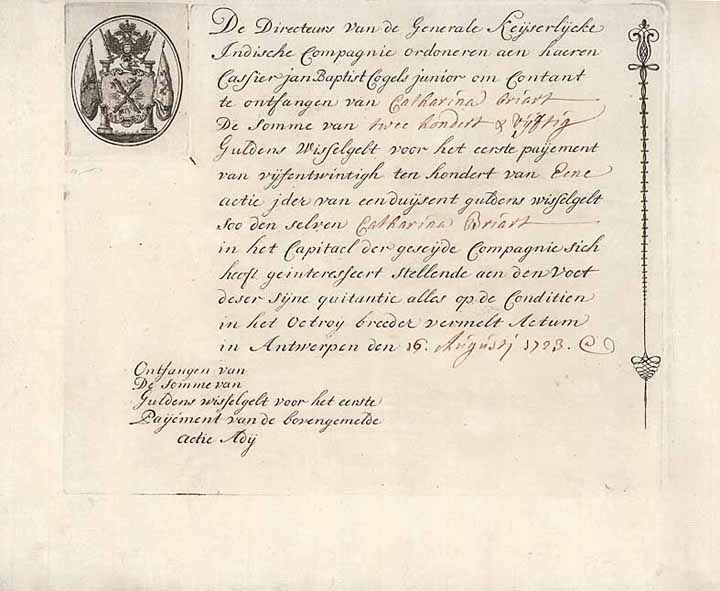 De Directeurs van de Generale Keijserlijcke
Indische Compagnie ordoneren aen haeren
Cassier jan Baptist Cogels junior om Contant
te ontfangen van Catharina Briart
De somme van twee hondert & vijftig
Guldens Wisselgelt voor het eerste paijement
van vijfentwintigh ten hondert van Eene
actie jder van eenduijsent guldens wisselgelt
soo den selven Catharina Briart
in het Capitael der geseijde Compagnie sich
heeft geinteresseert stellende aen den Voet
deser sijne quitantie alles op de Conditien
in het Octroij breeder vermelt Actum
in Antwerpen den 16. Augustj 1723.
Ontfangen van
De somme van
Guldens wisselgelt voor het eerste
Paijement van de bovengemelde
actie Adij